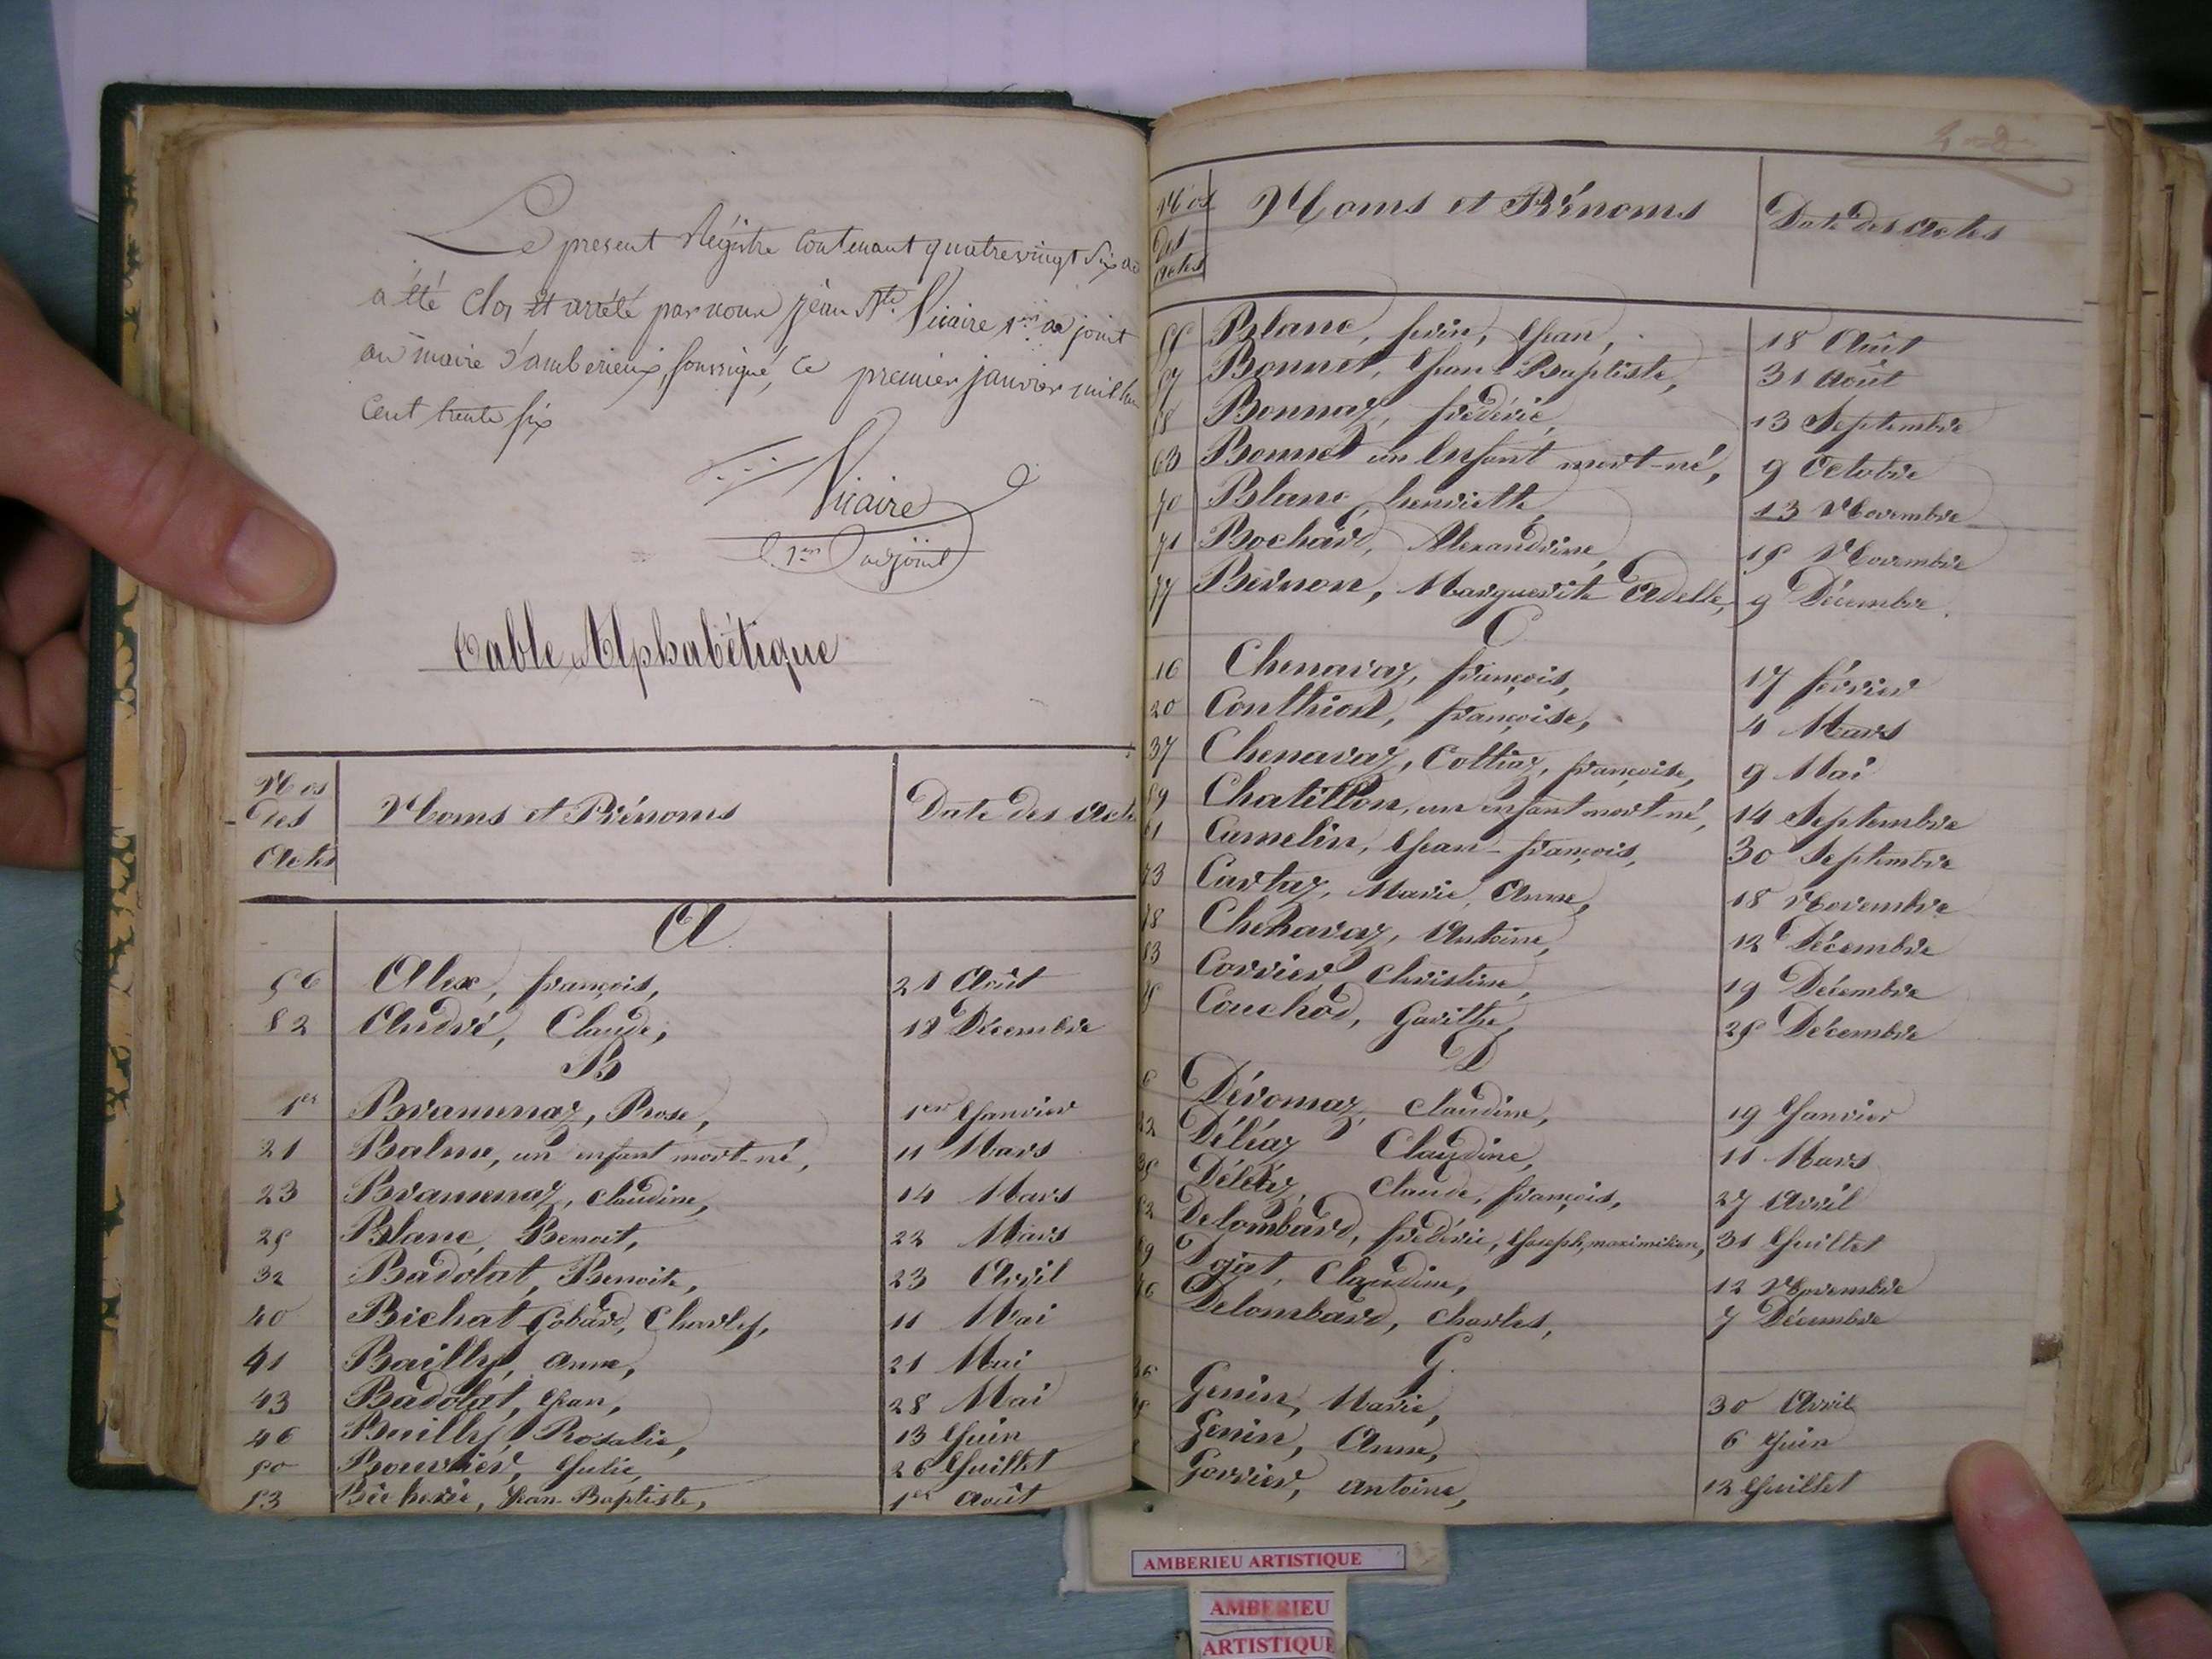 Le present Régistre Contenant quatrevingt Six
a été Clos et arrêté par nous Jean Bte Vicaire 1er adjoint
au maire d'amberieux, soussigné, ce premier janvier mil
Cent trente six
Vicaire
1er adjoint
Table Alphabétique
Nos des Actes Noms et Prénoms Date des Act
A
56 Alex, françois, 21 Août
82 André, Claude, 18 Décembre
B
1er Bramenaz, Rose, 1er Janvier
21 Balme, un enfant mort-né, 11 Mars
23 Bramenaz, claudine, 14 Mars
25 Blanc, Benoit, 22 Mars
32 Badolat, Benoite, 23 Avril
40 Bichat-Gobard, Charles, 11 Mai
41 Bailly, anne, 21 Mai
43 Badolat, Jean, 28 Mai
46 Bailly, Rosalie, 13 Juin
50 Bouvier, Julie, 26 Juillet
53 Jean-Baptiste, 1er Août
Nos des Actes Noms et Prénoms Date des Actes
55 Blanc, Jean, 18 Août
57 Bonnet, Jean-Baptiste, 31 Août
58 Bonnaz, frédéric, 13 Septembre
63 Bonnet un Enfant mort-né, 9 Octobre
70 Blanc, henriette, 13 Novembre
71 Bochard, Alexandrine, 15 Novembre
77 Bernon, Marguerite Adelle, 9 Décembre.
C
16 Chenavaz, françois, 17 février
20 Conthiod, françoise, 4 Mars
37 Chenavaz, Cottiaz, françoise, 9 Mai
59 Chatillon, un enfant mort-né, 14 Septembre
61 Camelin, Jean-françois, 30 Septembre
73 Cartaz, Marie, Anne, 18 Novembre
78 Chenavaz, Antoine, 12 Décembre
83 Corrier Christine, 19 Décembre
Couchod, 25 Décembre
D
6 Dévomaz, claudine, 19 Janvier
22 Déléaz Claudine, 11 Mars
35 Déléaz, Claude, françois, 27 Avril
52 Delombard, frédéric, Joseph, maximilien, 31 Juillet
69 Claudine, 12 Novembre
76 Delombard, charles, 7 Décembre
G.
36 Genin, Marie, 30 Avril
Genin, Anne, 6 Juin
Gorrier, antoine, 12 Juillet
AMBERIEU ARTISTIQUE
AMBERIEU
ARTISTIQUE